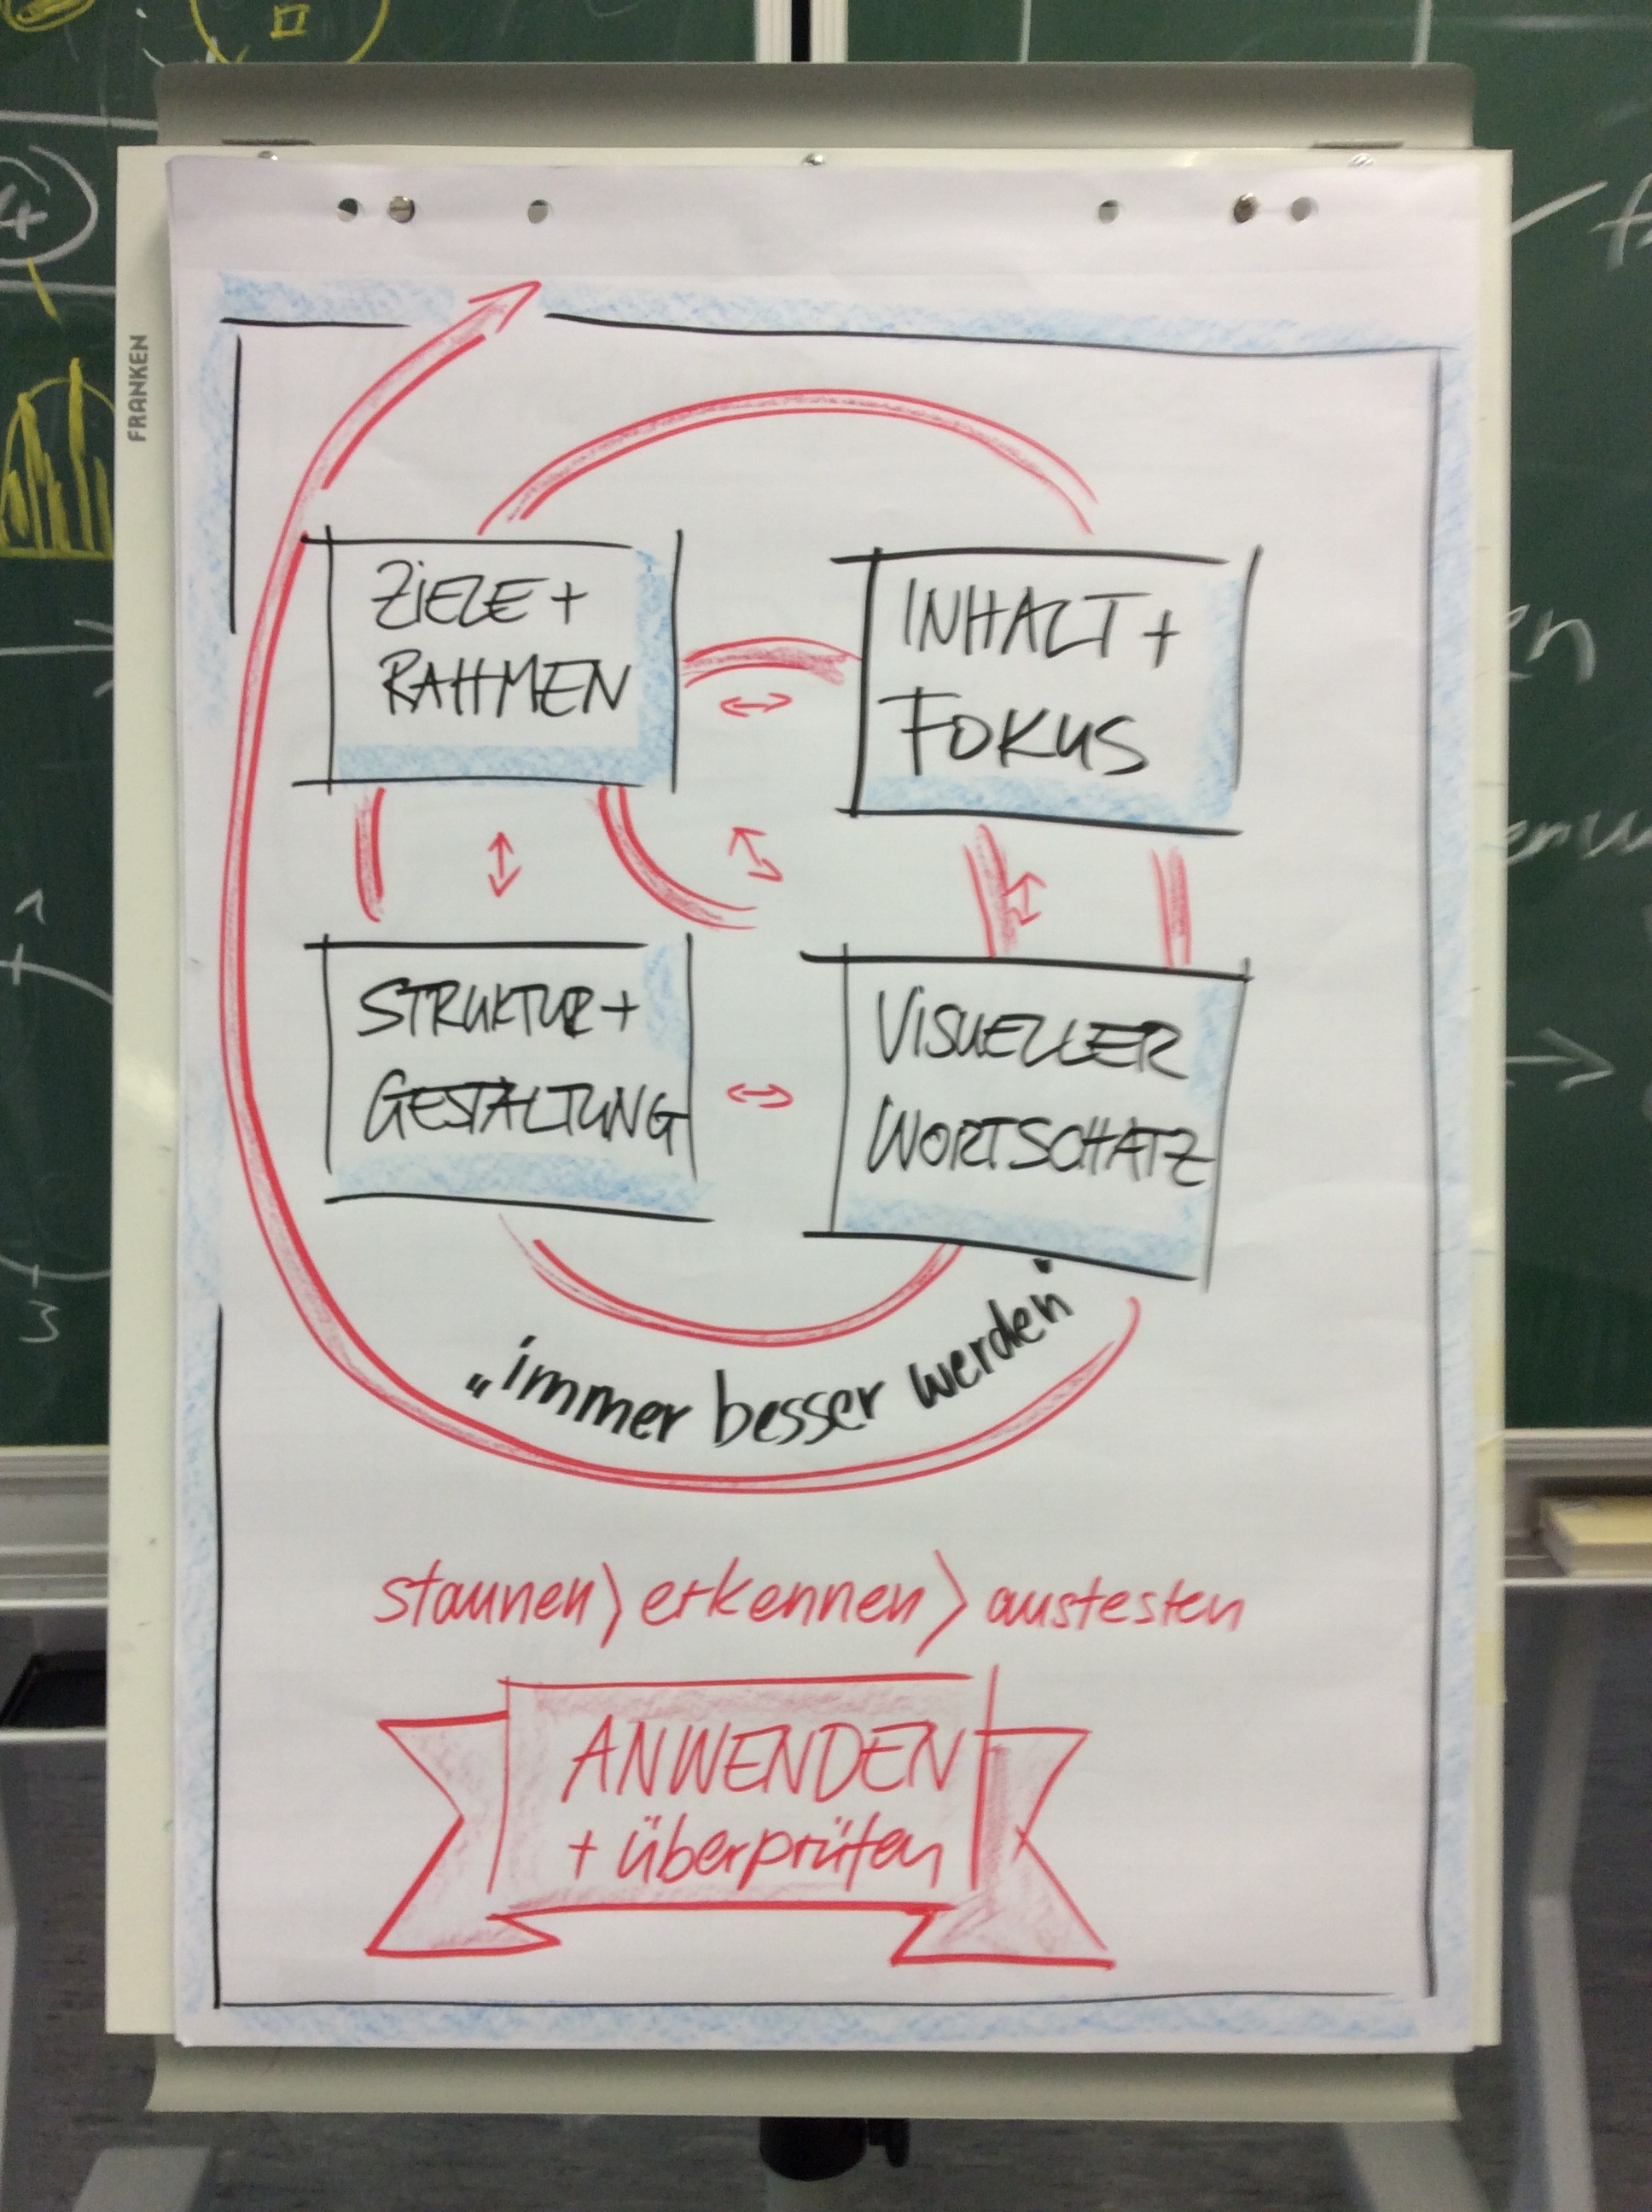 FRANKEN
ZIELE +
RAHMEN
INHALT +
FOKUS
STRUKTUR +
GESTALTUNG
VISUELLER
WORTSCHATZ
„immer besser werden"
staunen > erkennen > austesten
ANWENDEN
+ überprüfen
4
3